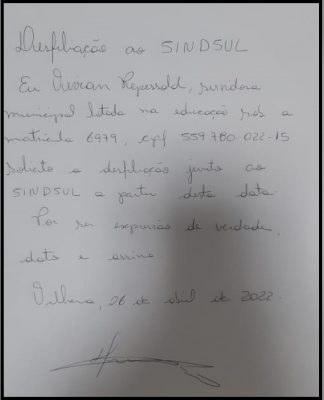 Desfiliação ao SINDSUL
Eu Vivian Repessold, servidora
municipal lotada na educação sob a
matrícula 6979, cpf 559780.022-15
solicito a desfiliação junto ao
SINDSUL a partir desta data.
Por ser expressão de verdade,
dato e assino.
Vilhena, 26 de abril de 2022.